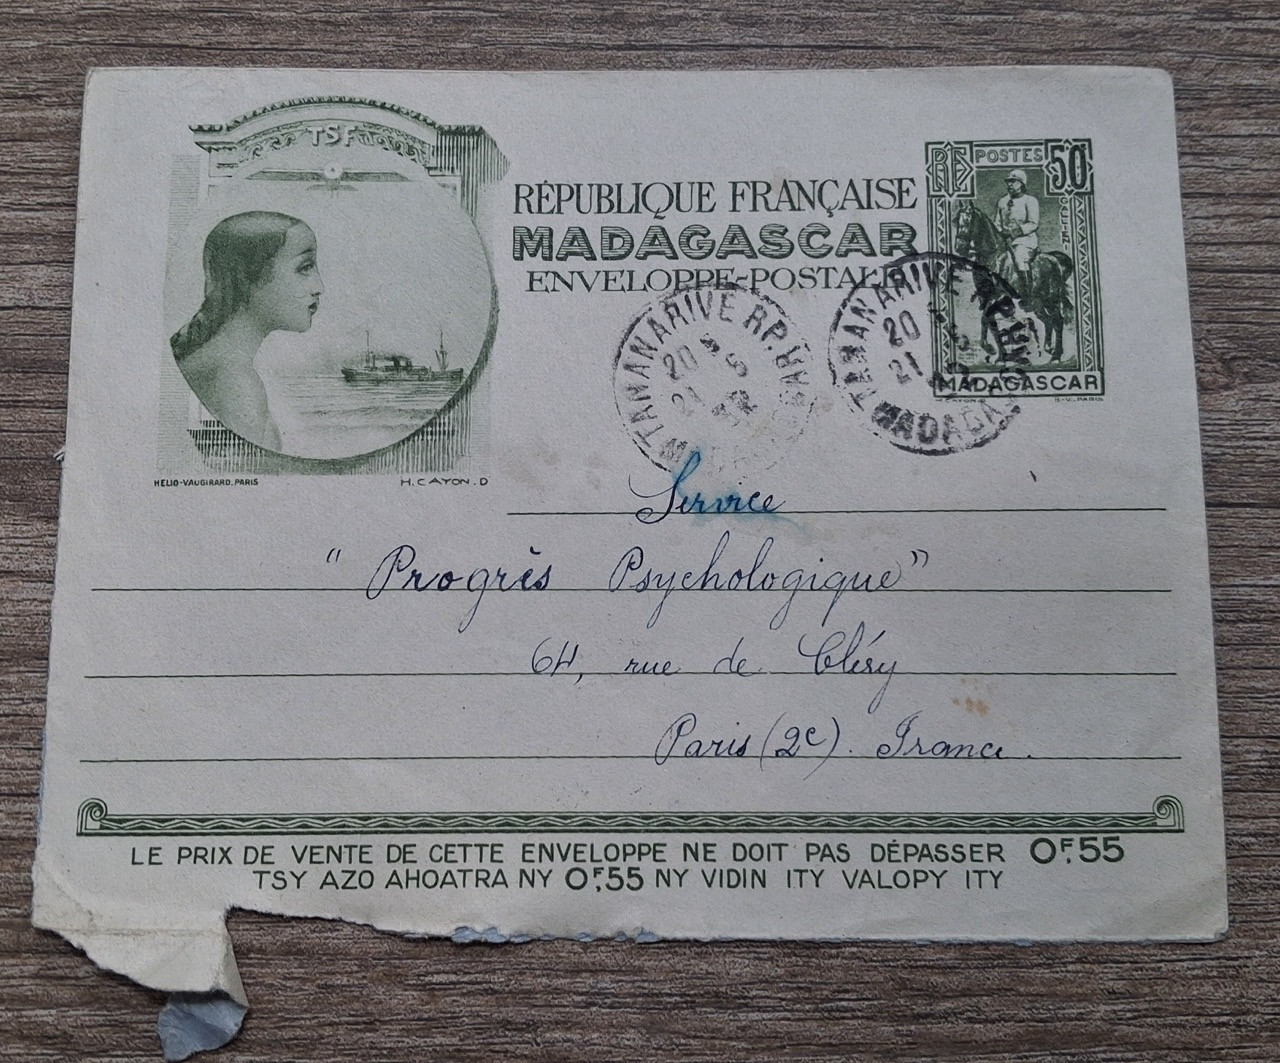 TSF
RÉPUBLIQUE FRANÇAISE
MADAGASCAR
ENVELOPPE-POSTALE
RF POSTES 50c
GALLIENI
MADAGASCAR
H. CAYON. D H-V. PARIS
TANANARIVE RP.
20
21
MADAGASCAR
TANANARIVE RP.
20
21
MADAGASCAR
HELIO-VAUGIRARD. PARIS
H. CAYON. D
Service
"Progrès Psychologique"
64, rue de Cléry
Paris (2e). France.
LE PRIX DE VENTE DE CETTE ENVELOPPE NE DOIT PAS DÉPASSER 0F,55
TSY AZO AHOATRA NY 0F,55 NY VIDIN ITY VALOPY ITY